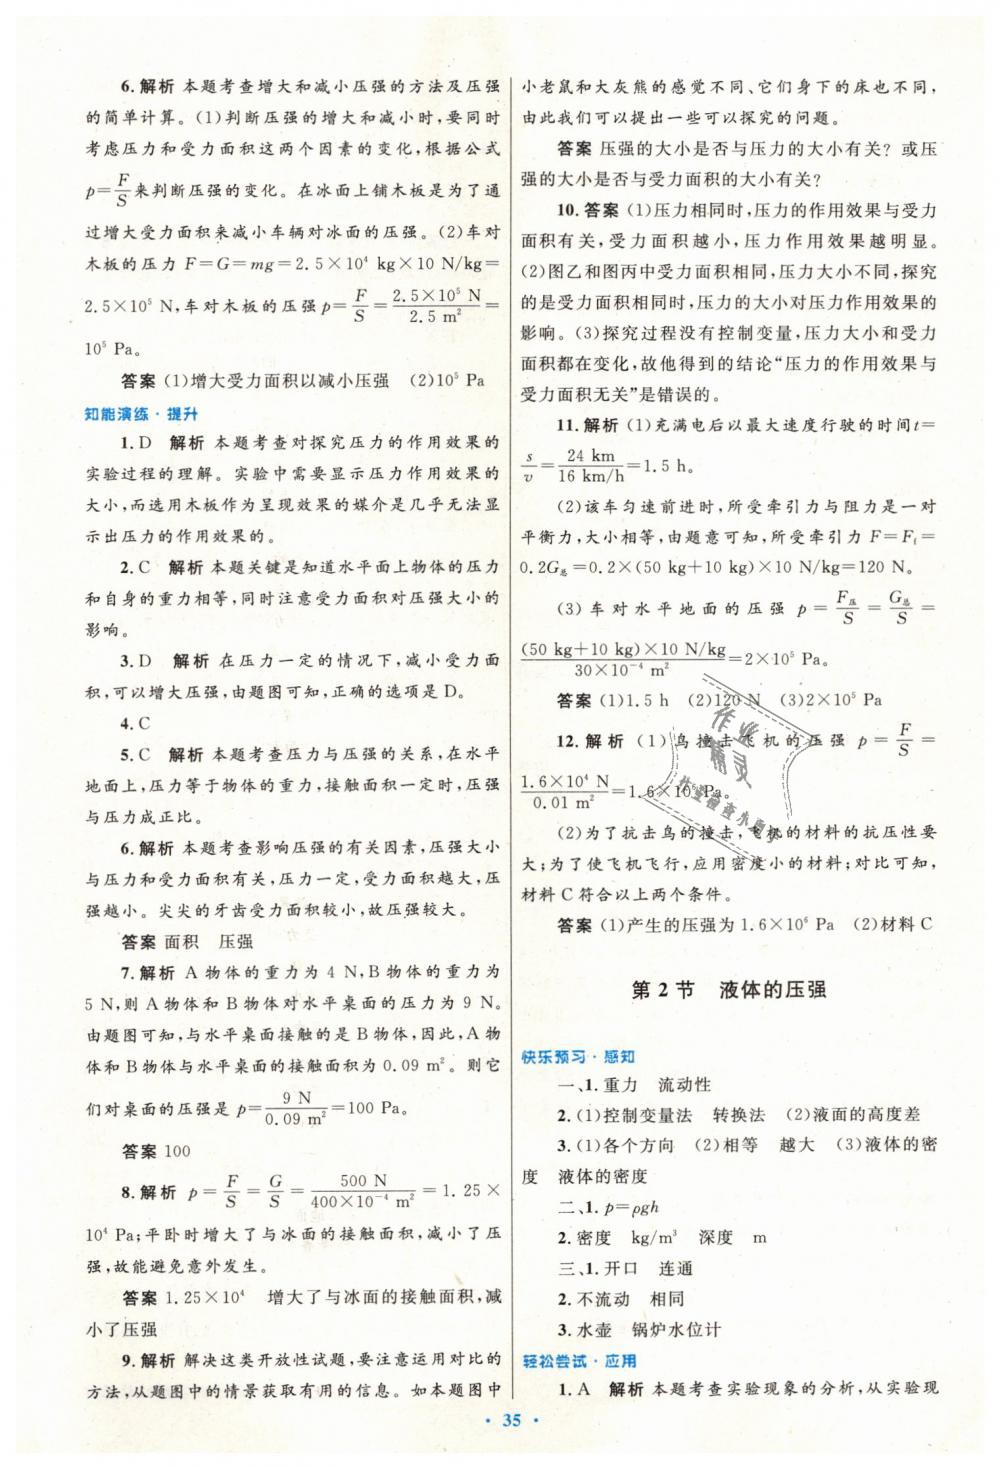 6. 解析 本题考查增大和减小压强的方法及压强
的简单计算。(1)判断压强的增大和减小时,要同时
考虑压力和受力面积这两个因素的变化,根据公式
p=F/S来判断压强的变化。在冰面上铺木板是为了通
过增大受力面积来减小车辆对冰面的压强。(2)车对
木板的压力 F=G=mg=2.5×10⁴ kg×10 N/kg=
2.5×10⁵ N,车对木板的压强 p=F/S=2.5×10⁵ N/2.5 m²=
10⁵ Pa。
答案 (1)增大受力面积以减小压强 (2)10⁵ Pa
知能演练·提升
1. D 解析 本题考查对探究压力的作用效果的
实验过程的理解。实验中需要显示压力作用效果的
大小,而选用木板作为呈现效果的媒介是几乎无法显
示出压力的作用效果的。
2. C 解析 本题关键是知道水平面上物体的压力
和自身的重力相等,同时注意受力面积对压强大小的
影响。
3. D 解析 在压力一定的情况下,减小受力面
积,可以增大压强,由题图可知,正确的选项是 D。
4. C
5. C 解析 本题考查压力与压强的关系,在水平
地面上,压力等于物体的重力,接触面积一定时,压强
与压力成正比。
6. 解析 本题考查影响压强的有关因素,压强大小
与压力和受力面积有关,压力一定,受力面积越大,压
强越小。尖尖的牙齿受力面积较小,故压强较大。
答案 面积 压强
7. 解析 A 物体的重力为 4 N,B 物体的重力为
5 N,则 A 物体和 B 物体对水平桌面的压力为 9 N。
由题图可知,与水平桌面接触的是 B 物体,因此,A 物
体和 B 物体与水平桌面接触面积为 0.09 m²。则它
们对桌面的压强是 p=9 N/0.09 m²=100 Pa。
答案 100
8. 解析 p=F/S=G/S=500 N/400×10⁻⁴ m²=1.25×
10⁴ Pa;平卧时增大了与冰面的接触面积,减小了压
强,故能避免意外发生。
答案 1.25×10⁴ 增大了与冰面的接触面积,减
小了压强
9. 解析 解决这类开放性试题,要注意运用对比的
方法,从题图中的情景获取有用的信息。如本题图中
小老鼠和大灰熊的感觉不同、它们身下的床也不同,
由此我们可以提出一些可以探究的问题。
答案 压强的大小是否与压力的大小有关? 或压
强的大小是否与受力面积的大小有关?
10. 答案 (1)压力相同时,压力的作用效果与受力
面积有关,受力面积越小,压力作用效果越明显。
(2)图乙和图丙中受力面积相同,压力大小不同,探究
的是受力面积相同时,压力的大小对压力作用效果的
影响。(3)探究过程没有控制变量,压力大小和受力
面积都在变化,故他得到的结论“压力的作用效果与
受力面积无关”是错误的。
11. 解析 (1)充满电后以最大速度行驶的时间 t=
s/v=24 km/16 km/h=1.5 h。
(2)该车匀速前进时,所受牵引力与阻力是一对
平衡力,大小相等,由题意可知,所受牵引力 F=Ff=
0.2G总=0.2×(50 kg+10 kg)×10 N/kg=120 N。
(3)车对水平地面的压强 p=F压/S=G总/S=
(50 kg+10 kg)×10 N/kg/30×10⁻⁴ m²=2×10⁵ Pa。
答案 (1)1.5 h (2)120 N (3)2×10⁵ Pa
12. 解析 (1)鸟撞击飞机的压强 p=F/S=
1.6×10⁴ N/0.01 m²=1.6×10⁶ Pa。
(2)为了抗击鸟的撞击,飞机的材料的抗压性要
大;为了使飞机飞行,应用密度小的材料;对比可知,
材料 C 符合以上两个条件。
答案 (1)产生的压强为 1.6×10⁶ Pa (2)材料 C
第 2 节 液体的压强
快乐预习·感知
一、1. 重力 流动性
2. (1)控制变量法 转换法 (2)液面的高度差
3. (1)各个方向 (2)相等 越大 (3)液体的密
度 液体的密度
二、1. p=ρgh
2. 密度 kg/m³ 深度 m
三、1. 开口 连通
2. 不流动 相同
3. 水壶 锅炉水位计
轻松尝试·应用
1. A 解析 本题考查实验现象的分析,从实验现
作业
精灵
作业检查小帮手
• 35 •